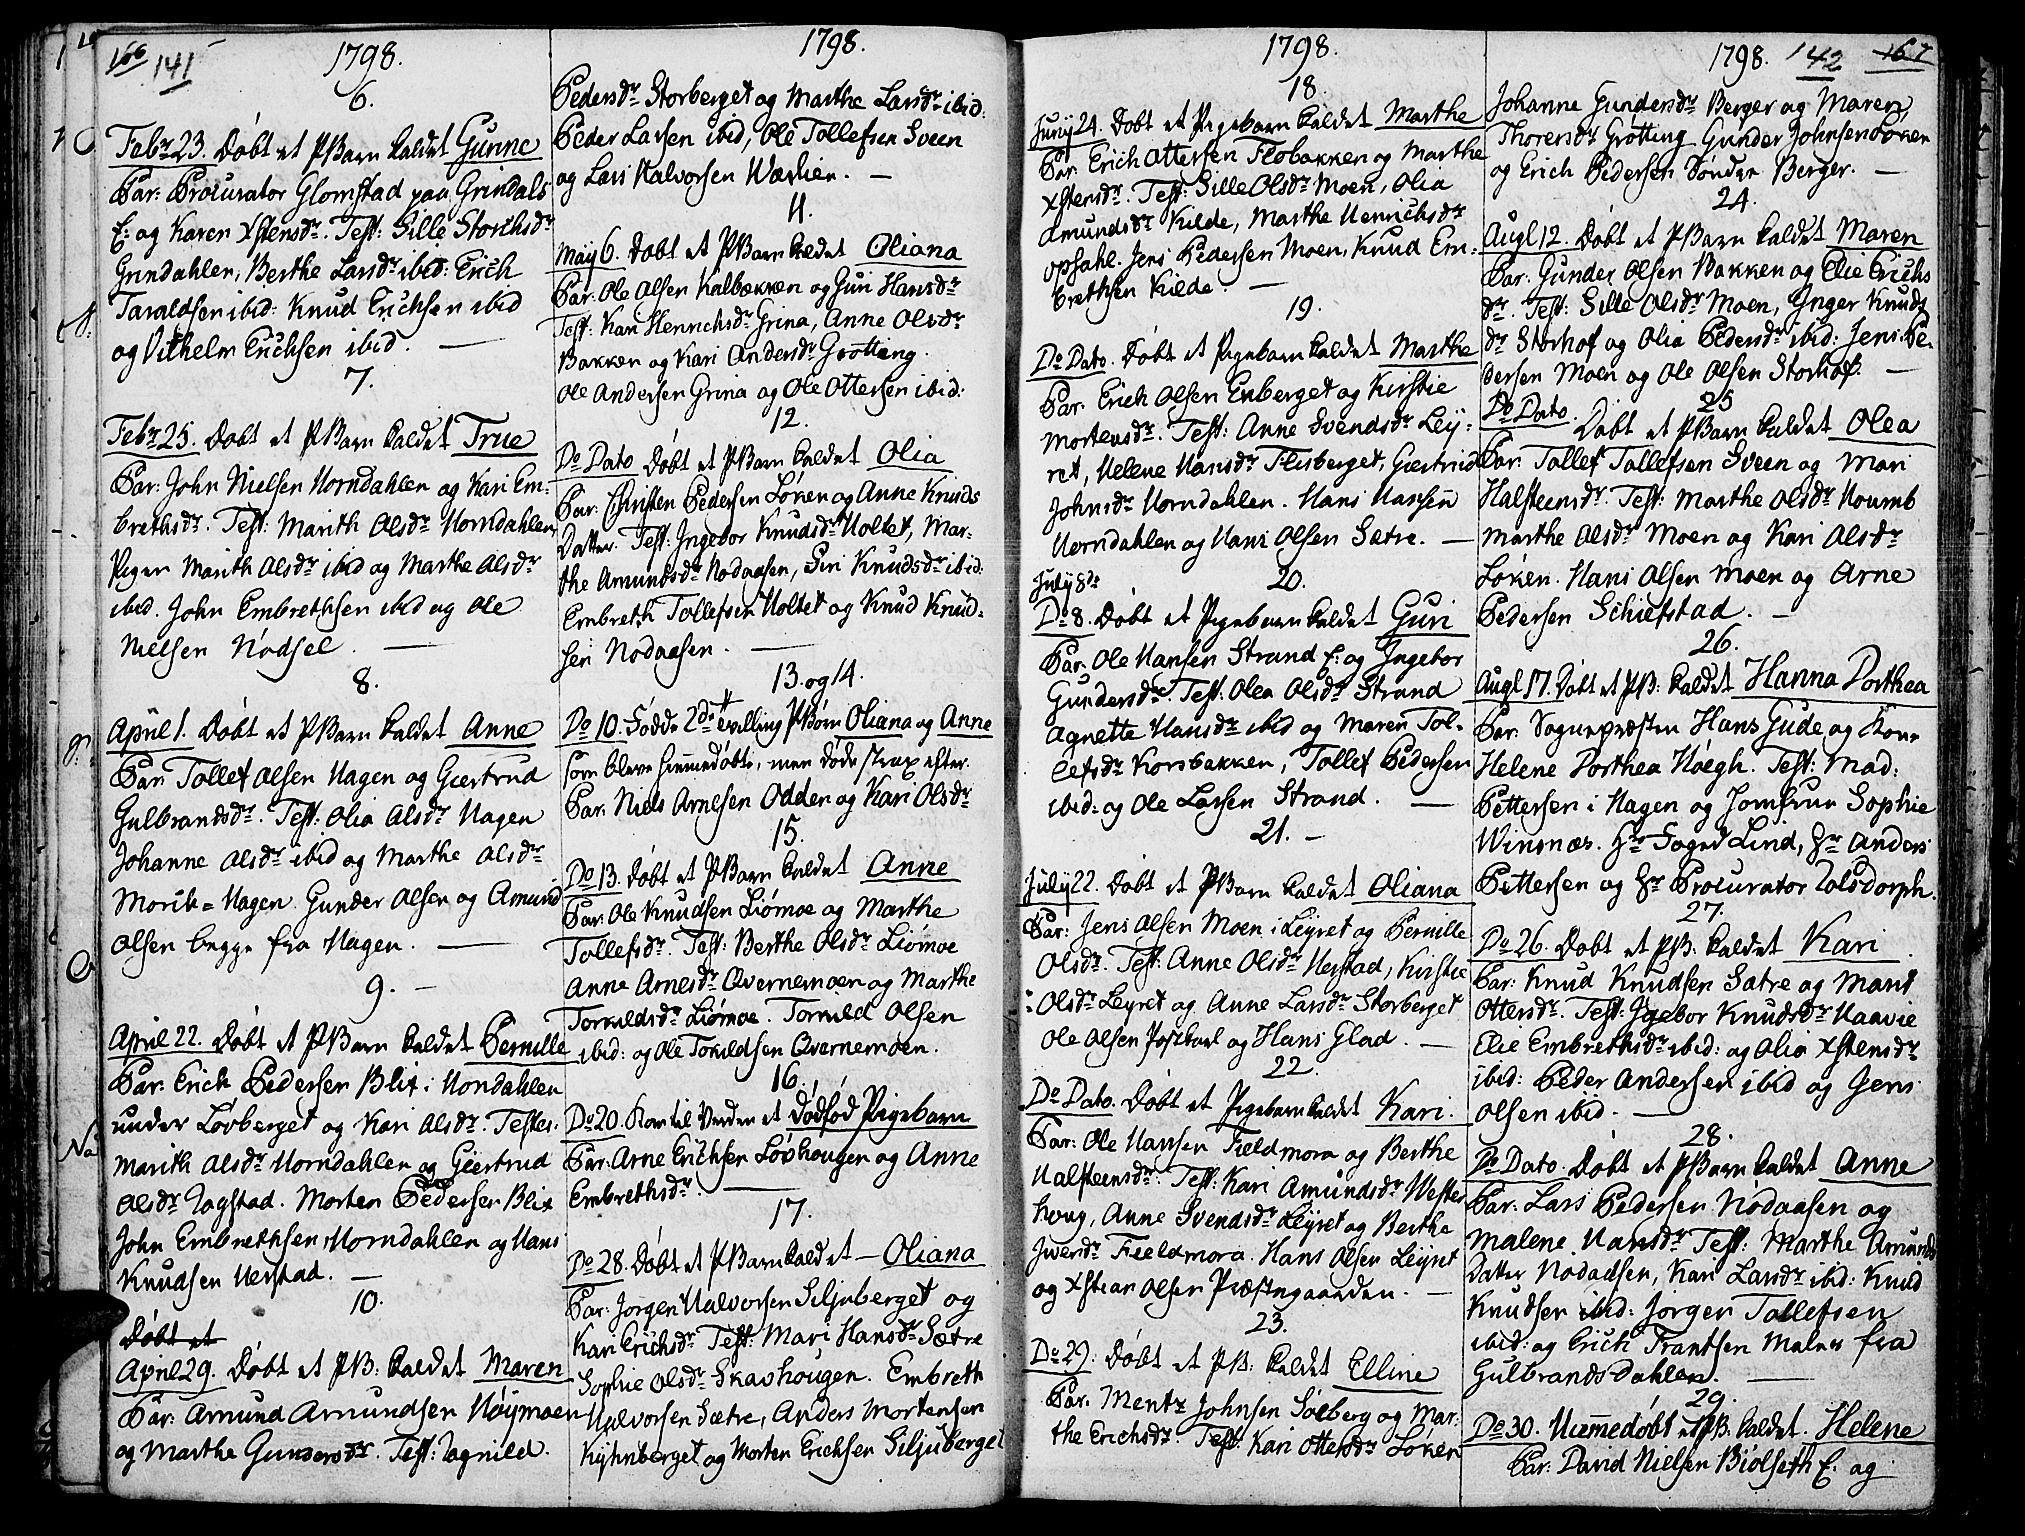 166 141
1798.
6.
Febr 23. Døbt et PBarn kaldet Gunne
Par: Procurator Glomstad paa Grindals
E: og Karen Xstensdr. Test: Sille Storchsdr
Grindahlen, Berthe Larsdr ibid: Erich
Taraldsen ibid: Knud Erichsen ibid
og Vilhelm Erichsen ibid.
7.
Febr 25. Døbt et PBarn kaldet True
Par: John Nielsen Horndahlen og Kari Em-
brethsdr. Test: Marith Olsdr Horndahlen
Pigen Marith Olsdr ibid og Marthe Olsdr
ibid. John Embrethsen ibid og Ole
Nielsen Nødsel.
8.
April 1. Døbt et PBarn kaldet Anne
Par: Tollef Olsen Hagen og Giertrud
Gulbrandsdr. Test: Olia Olsdr Hagen
Johanne Olsdr ibid og Marthe Olsdr
Morih= Hagen. Gunder Olsen og Amund
Olsen begge fra Hagen.
9.
April 22. Døbt et PBarn kaldet Pernille
Par: Erich Pedersen Blix i Hondahlen
under Løvberget og Kari Olsdr. Testes.
Marith Olsdr Horndahlen og Giertrud
Olsdr Tagstad. Morten Pedersen Blix
John Embrethsen Horndahlen og Hans
Knudsen Herstad.
10.
Døbt et
April 29. Døbt et PB: kaldet Maren
Par: Amund Amundsen Høymoen
og Marthe Gundersdr. Test: Tagnild
1798.
Pedersdr Storberget og Marthe Larsdr ibid:
Peder Larsen ibid, Ole Tollefsen Sveen
og Lars Halvorsen Wærlien.
11.
May 6. Døbt et PBarn kaldet Oliana
Par: Ole Olsen Kalbækken og Guri Hansdr
Test: Kari Henrichsdr Grina, Anne Olsdr
Bakken og Kari Andersdr Grøtting.
Ole Andersen Grina og Ole Ottersen ibid:
12.
Do Dato Døbt et PBarn kaldet Olia
Par: Christen Pedersen Løken og Anne Knuds
Datter. Test: Ingebor Knudsdr Holtet, Mar-
the Amundsdr Nodaasen, Siri Knudsdr ibid:
Embreth Tollefsen Holtet og Knud Knud-
sen Nodaasen.
13. og 14.
Do 10. Fødde 2de tvilling PBørn Oliana og Anne
som bleve hiemmedøbte, men døde strax efter.
Par: Niels Arnesen Odden og Kari Olsdr
15.
Do 13. Døbt et PBarn kaldet Anne
Par: Ole Knudsen Liømoe og Marthe
Tollefsdr. Test: Berthe Olsdr Liømoe
Anne Arnesdr Qvernemoen og Marthe
Torkildsdr Liømoe. Torkild Olsen
ibid: og Ole Tokildsen Qvernemoen.
16.
Do 20. Kom til Verden et dødfød Pigebarn
Par: Arne Erichsen Løvhougen og Anne
Embrethsdr.
17.
Do 28. Døbt et PBarn kaldet Oliana
Par: Jorgen Halvorsen Siljuberget og
Kari Erichsdr Test: Mari Hansdr Sætre
Sophie Olsdr Skavhougen. Embreth
Halvorsen Sætre, Anders Mortensen
Kyhnberget og Morten Erichsen Siljuberget
1798.
18.
Juny 24. Døbt et Pigebarn kaldet Marthe
Par: Erich Ottersen Flobakken og Marthe
Xstensdr. Test: Sille Olsdr Moen, Olia
Amundsdr Kilde, Marthe Henrichsdr
Opsahl. Jens Pedersen Moen, Knud Em-
brethsen Kilde.
19.
Do Dato. Døbt et Pigebarn kaldet Marthe
Par: Erich Olsen Enberget og Kirstie
Mortensdr. Test: Anne Svendsdr Ley-
ret, Helene Hansdr Flisberget, Giertrud
Johnsdr Horndahlen. Hans Hansen
Horndahlen og Hans Olsen Sætre.
July 8de 20.
Do 8. Døbt et Pigebarn kaldet Guri
Par: Ole Hansen Strand E: og Ingebor
Gundersdr. Test: Olea Olsdr Strand
Agnette Hansdr ibid og Maren Tol-
lefsdr Korsbakken, Tollef Pedersen
ibid: og Ole Larsen Strand.
21.
July 22. Døbt et PBarn kaldet Oliana
Par: Jens Olsen Moen i Leyret og Pernille
Olsdr. Test: Anne Olsdr Herstad, Kirstie
Olsdr Leyret og Anne Larsdr Storberget
Ole Olsen Postkarl og Hans Glad.
22.
Do Dato. Døbt et Pigebarn kaldet Kari.
Par: Ole Hansen Fieldmora og Berthe
Halsteensdr. Test: Kari Amundsdr Wester
houg, Anne Svendsdr Leyret og Berthe
Iversdr Fieldmora. Hans Olsen Leyret
og Xstian Olsen Præstegaarden.
23.
Do 29. Døbt et PB: kaldet Elline
Par: Mentz Johnsen Solberg og Mar-
the Erichsdr. Test: Kari Ottersdr Løken
1798. 142 167
Johanne Gundersdr Berger og Maren
Thoresdr Grøtting Gunder Johnsen Løken
og Erich Pedersen Sønder Berger.
24.
Augl 12. Døbt et PBarn kaldet Maren
Par: Gunder Olsen Bakken og Elie Erichs
dr. Test: Sille Olsdr Moen, Ynger Knuds
dr Storhof og Olia Pedersdr ibid: Jens Pe-
dersen Moen og Ole Olsen Storhof.
25
Do Dato. Døbt et PBarn kaldet Olea
Par: Tollef Tollefsen Sveen og Mari
Halsteensdr. Test: Marthe Olsdr Houmb
Marthe Olsdr Moen og Kari Olsdr
Løken. Hans Olsen Moen og Arne
Pedersen Schiefstad.
26.
Augl 17. Døbt et PB: kaldet Hanna Dorthea
Par: Sognepræsten Hans Gude og Kone
Helene Dorthea Høegh. Test: Mad:
Pettersen i Hagen og Jomfrue Sophie
Winsnæs. Hr Foged Lind, Hr Anders
Pettersen og Hr Procurator Tolsdorph.
27.
Do 26. Døbt et PB: kaldet Kari
Par: Knud Knudsen Sætre og Marit
Ottersdr. Test: Igebor Knudsdr Haavie
Elie Embrethsdr ibid: og Olia Xstensdr
ibid: Peder Andersen ibid og Jens
Olsen ibid.
28.
Do Dato. Døbt et PBarn kaldet Anne
Par: Lars Pedersen Nodaasen og
Malene Hansdr Test: Marthe Amunds
Datter Nodaasen, Kari Larsdr ibid: Knud
Knudsen ibid: Jorgen Tollefsen
ibid: og Erich Frantsen Malnes fra
Gulbrandsdahlen.
29.
Do 30. Hiemmedøbt et PB. kaldet Helene
Par: David Nielsen Biølseth E. og